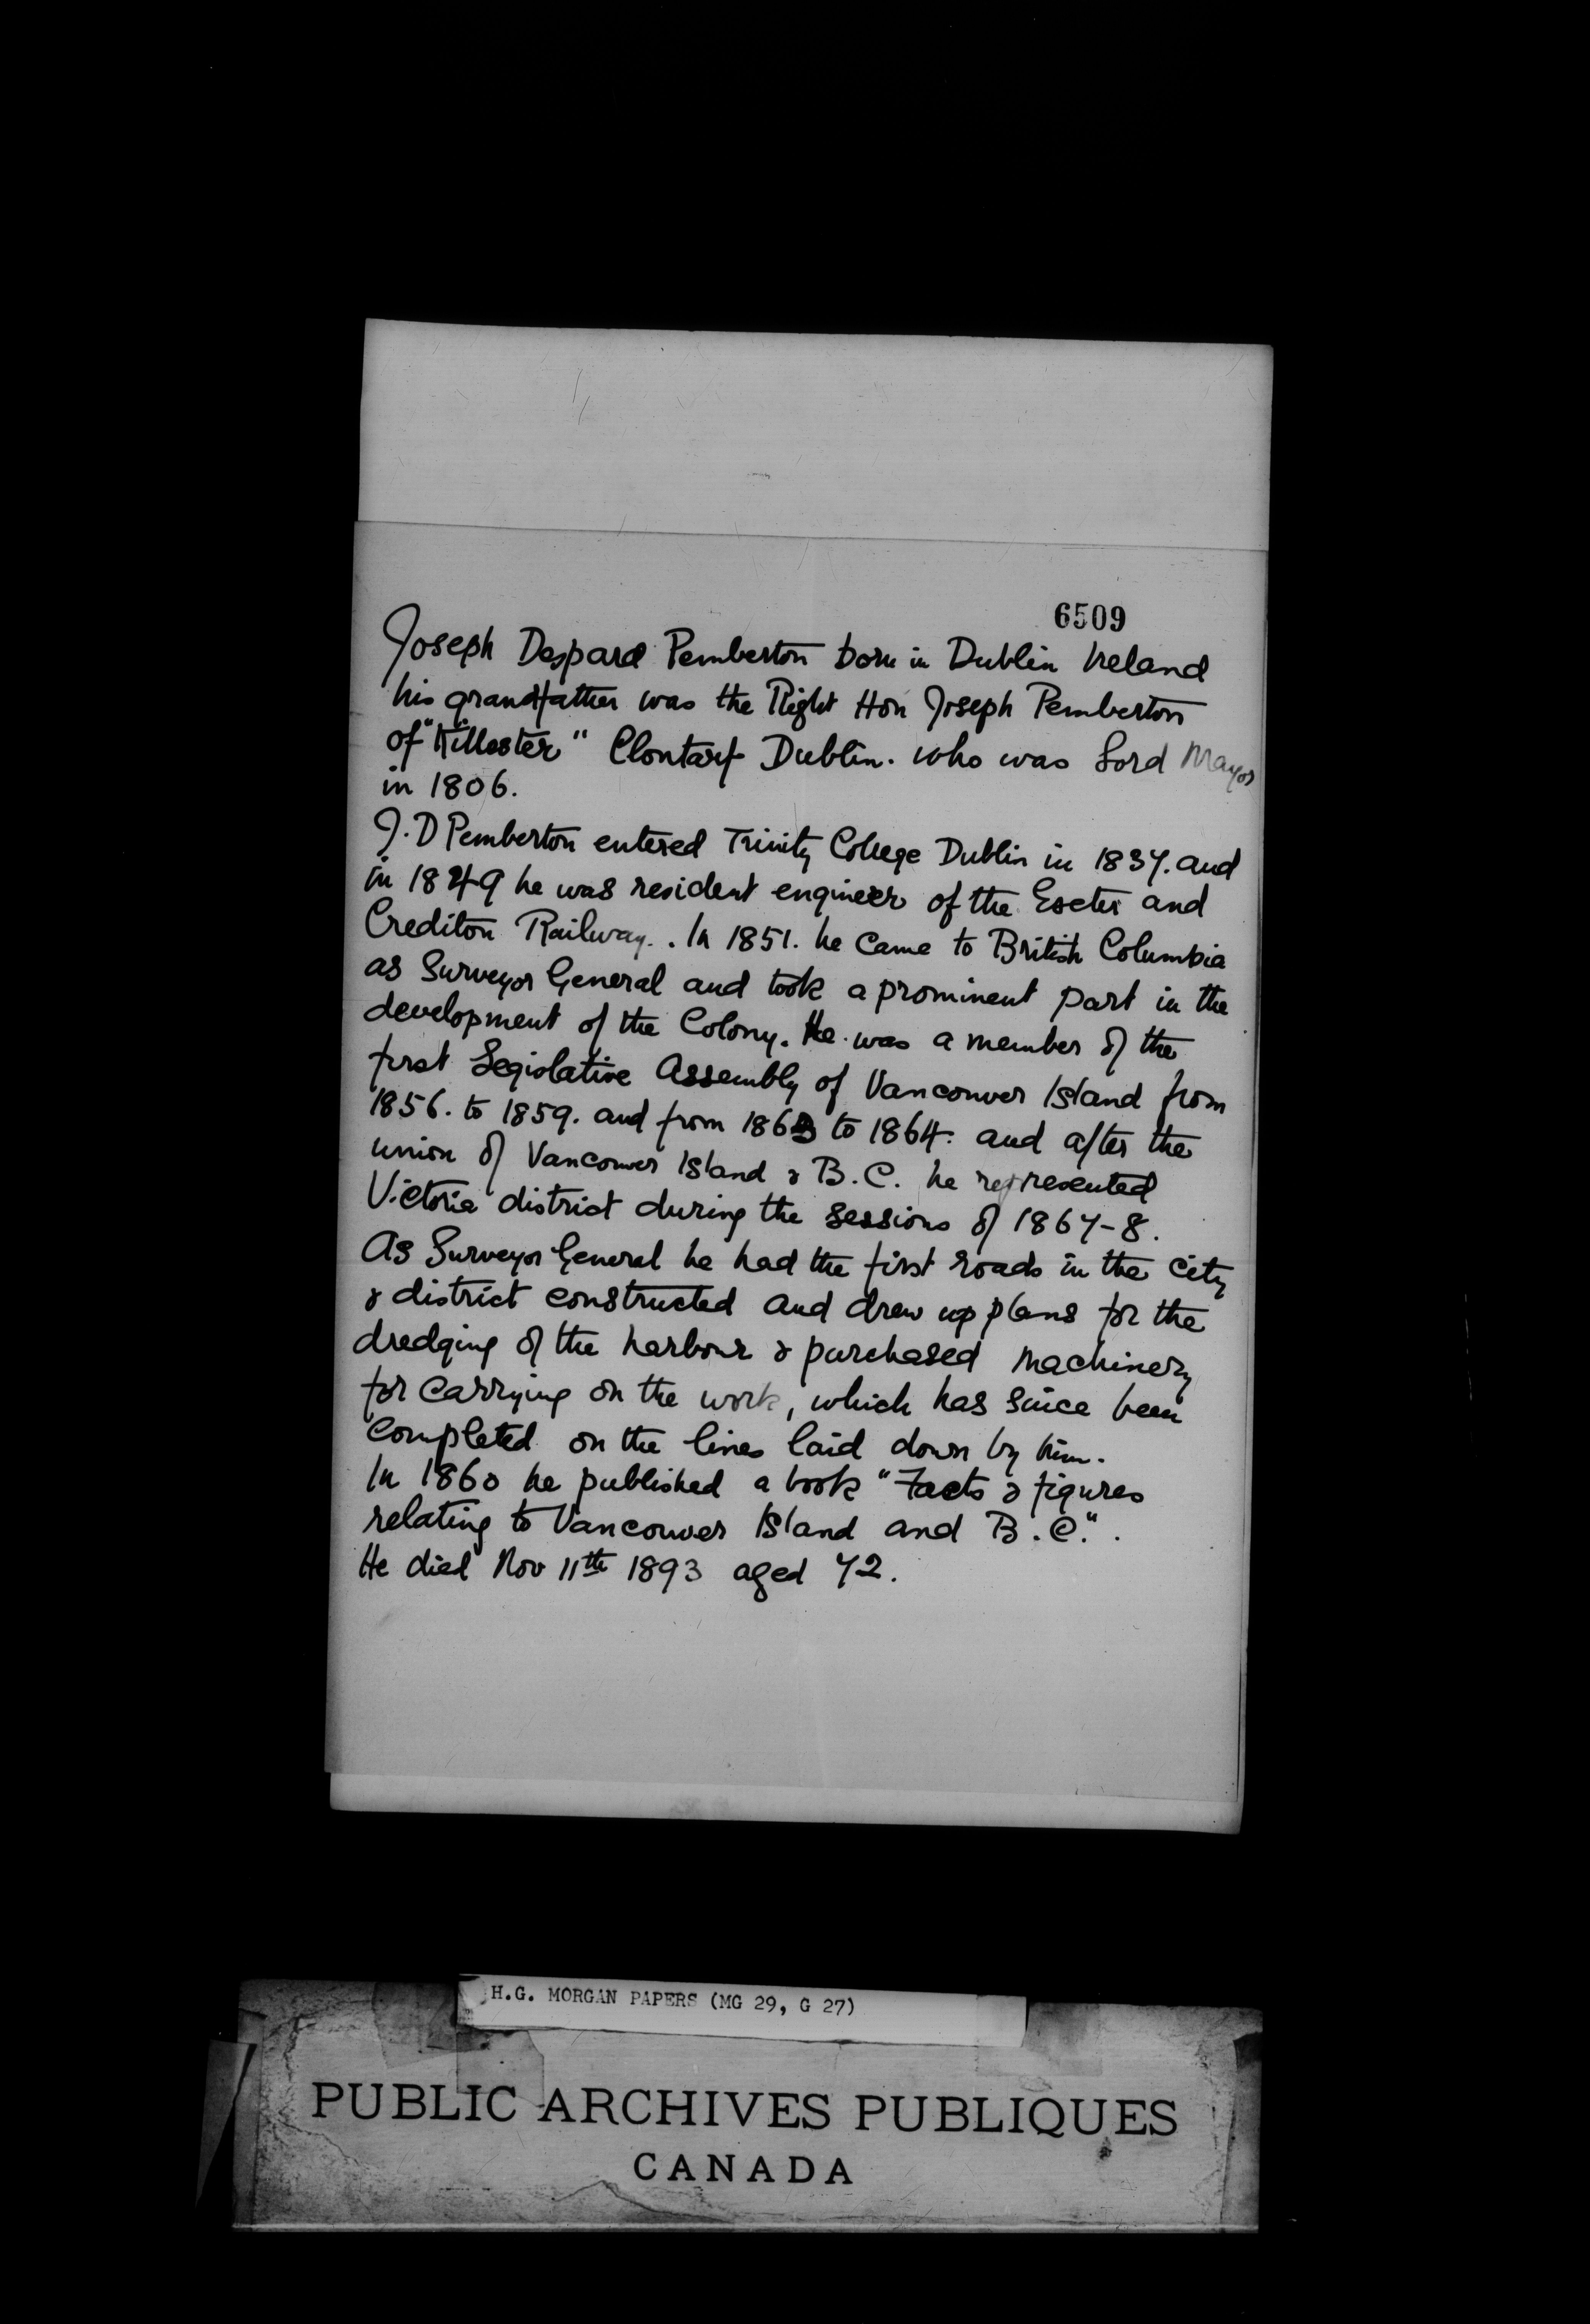 6509
Joseph Despard Pemberton born in Dublin Ireland
his grandfather was the Right Hon Joseph Pemberton
of "Killester" Clontarf Dublin. who was Lord Mayor
in 1806.
J. D Pemberton entered Trinity College Dublin in 1837. and
in 1849 he was resident engineer of the Exeter and
Crediton Railway. . In 1851. he came to British Columbia
as Surveyor General and took a prominent part in the
development of the Colony. He was a member of the
first Legislative Assembly of Vancouver Island from
1856. to 1859. and from 1863 to 1864. and after the
union of Vancouver Island & B.C. he represented
Victoria district during the sessions of 1867-8.
As Surveyor General he had the first roads in the city
& district constructed and drew up plans for the
dredging of the harbour & purchased machinery
for carrying on the work, which has since been
completed on the lines laid down by him.
In 1860 he published a book "Facts & figures
relating to Vancouver Island and B.C." .
He died Nov 11th 1893 aged 72.
H.G. MORGAN PAPERS (MG 29, G 27)
PUBLIC ARCHIVES PUBLIQUES
CANADA